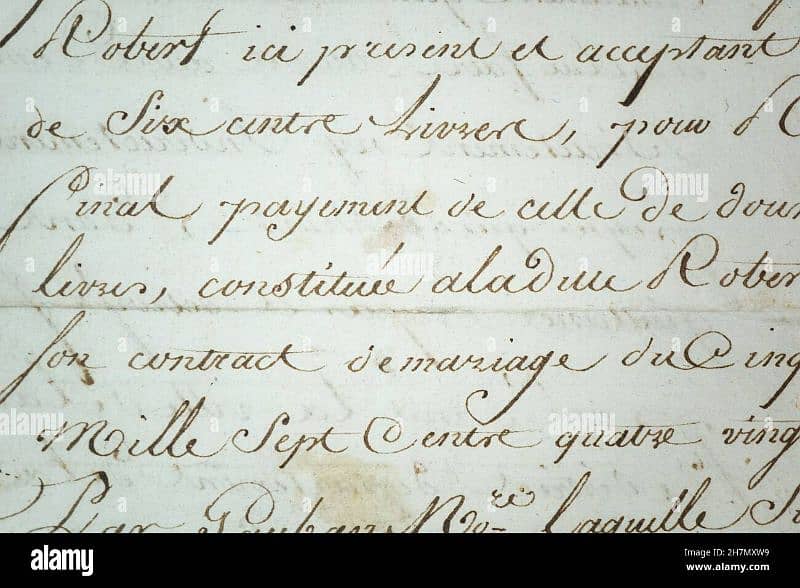 Robert ici present et acceptant
de Six centre Livrere, pour
final payement de celle de dour
livres, constituée aladitte Rober
son contract demariage du Cinq
Mille Sept Centre quatre ving
Par N.re laquelle
alamy
Image ID: 2H7MXW9
www.alamy.com